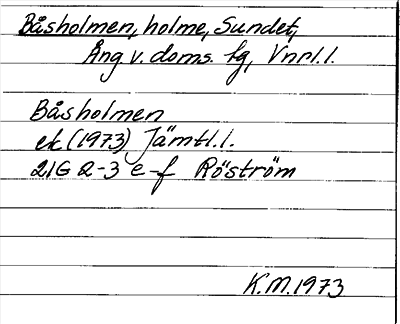 Båsholmen, holme, Sundet,
Ång v. doms. fg, Vnrl.l.
Båsholmen
ek (1973) Jämtl.l.
21G 2-3 e-f Röström
K.M. 1973